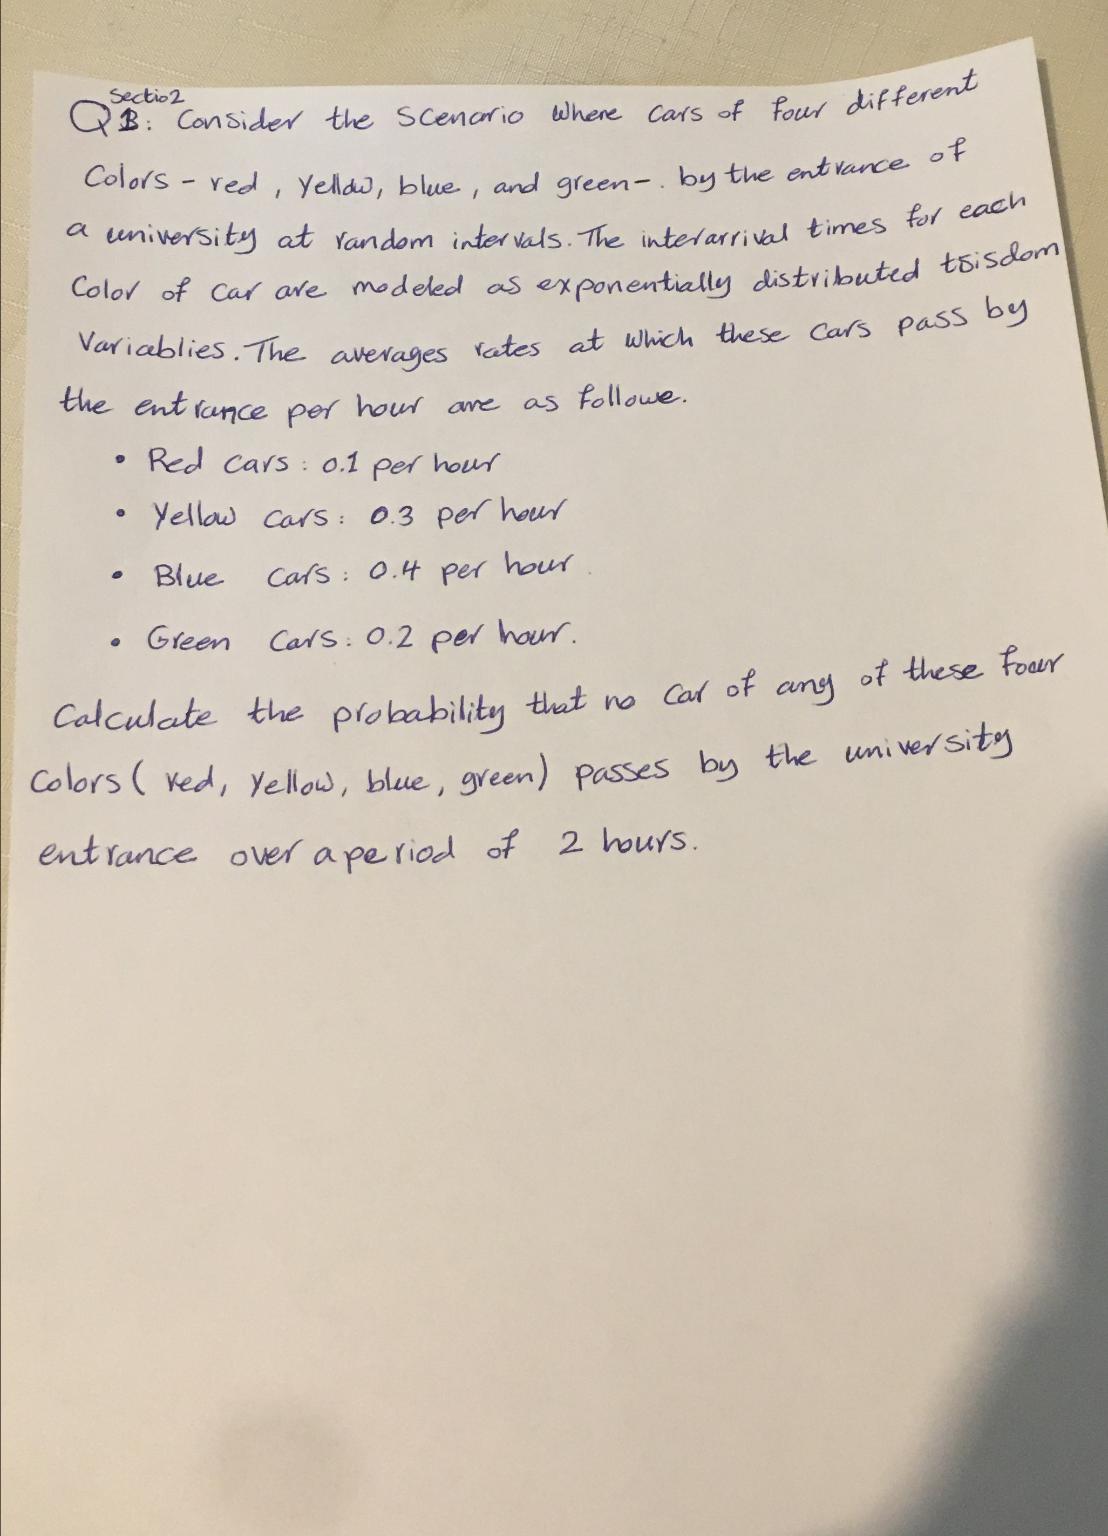 Sectio2
Q1: Consider the Scenario Where Cars of four different
Colors - red, Yellow, blue, and green-. by the entrance of
a university at random intervals. The interarrival times for each
Color of Car are modeled as exponentially distributed
Variablies. The averages rates at which these Cars pass by
the entrance per hour are as followe.
• Red Cars: 0.1 per hour
• Yellow Cars: 0.3 per hour
• Blue Cars: 0.4 per hour
• Green Cars: 0.2 per hour.
Calculate the probability that no Car of any of these four
Colors (red, Yellow, blue, green) passes by the university
entrance over a period of 2 hours.